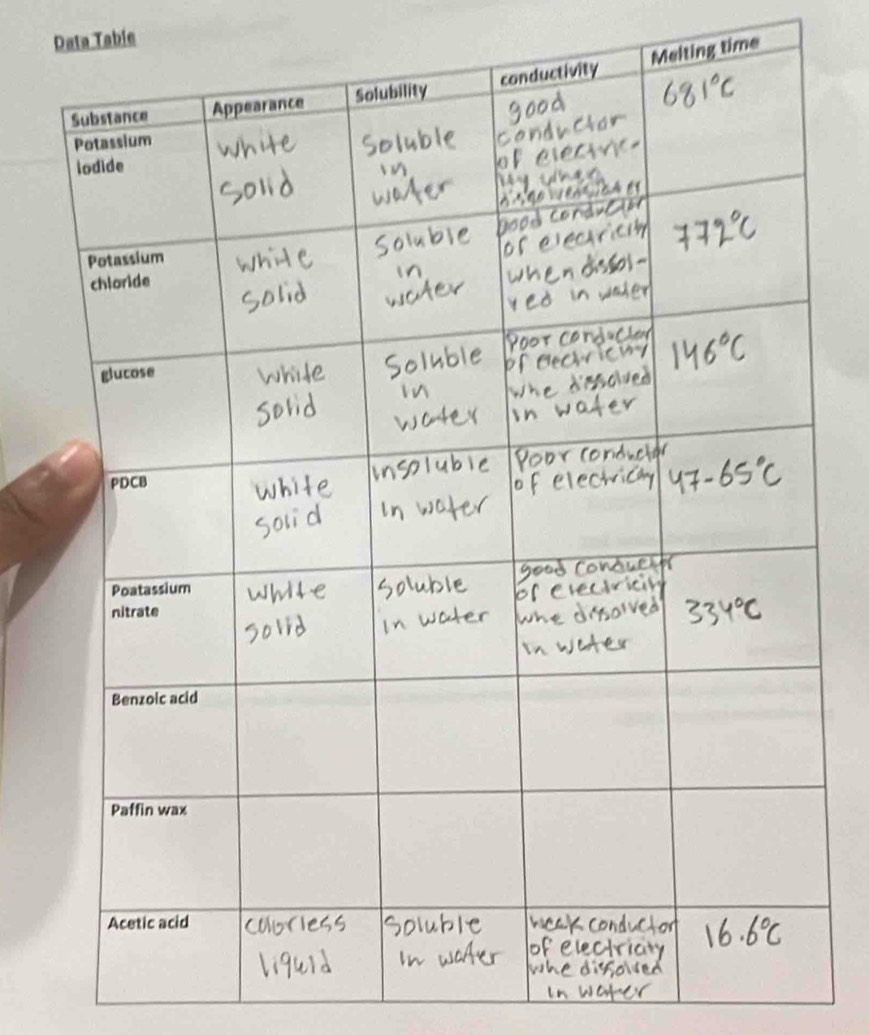 Data Table
Substance Appearance Solubility conductivity Melting time
Potassium
iodide
white
solid
soluble
in
water
good
conductor
of electric-
ity when
681°C
Potassium
chloride
white
solid
soluble
in
water
good conductor
of electricity
when dissol-
ved in water
772°C
glucose
white
solid
soluble
in
water
poor conductor
of electricity
whe dissolved
in water
146°C
PDCB
white
solid
insoluble
in water
Poor conductor
of electricity
47-65°C
Poatassium
nitrate
white
solid
soluble
in water
good conductor
of electricity
whe dissolved
in water
334°C
Benzoic acid
Paffin wax
Acetic acid
colorless
liquid
soluble
in water
weak conductor
of electricity
whe dissolved
in water
16.6°C